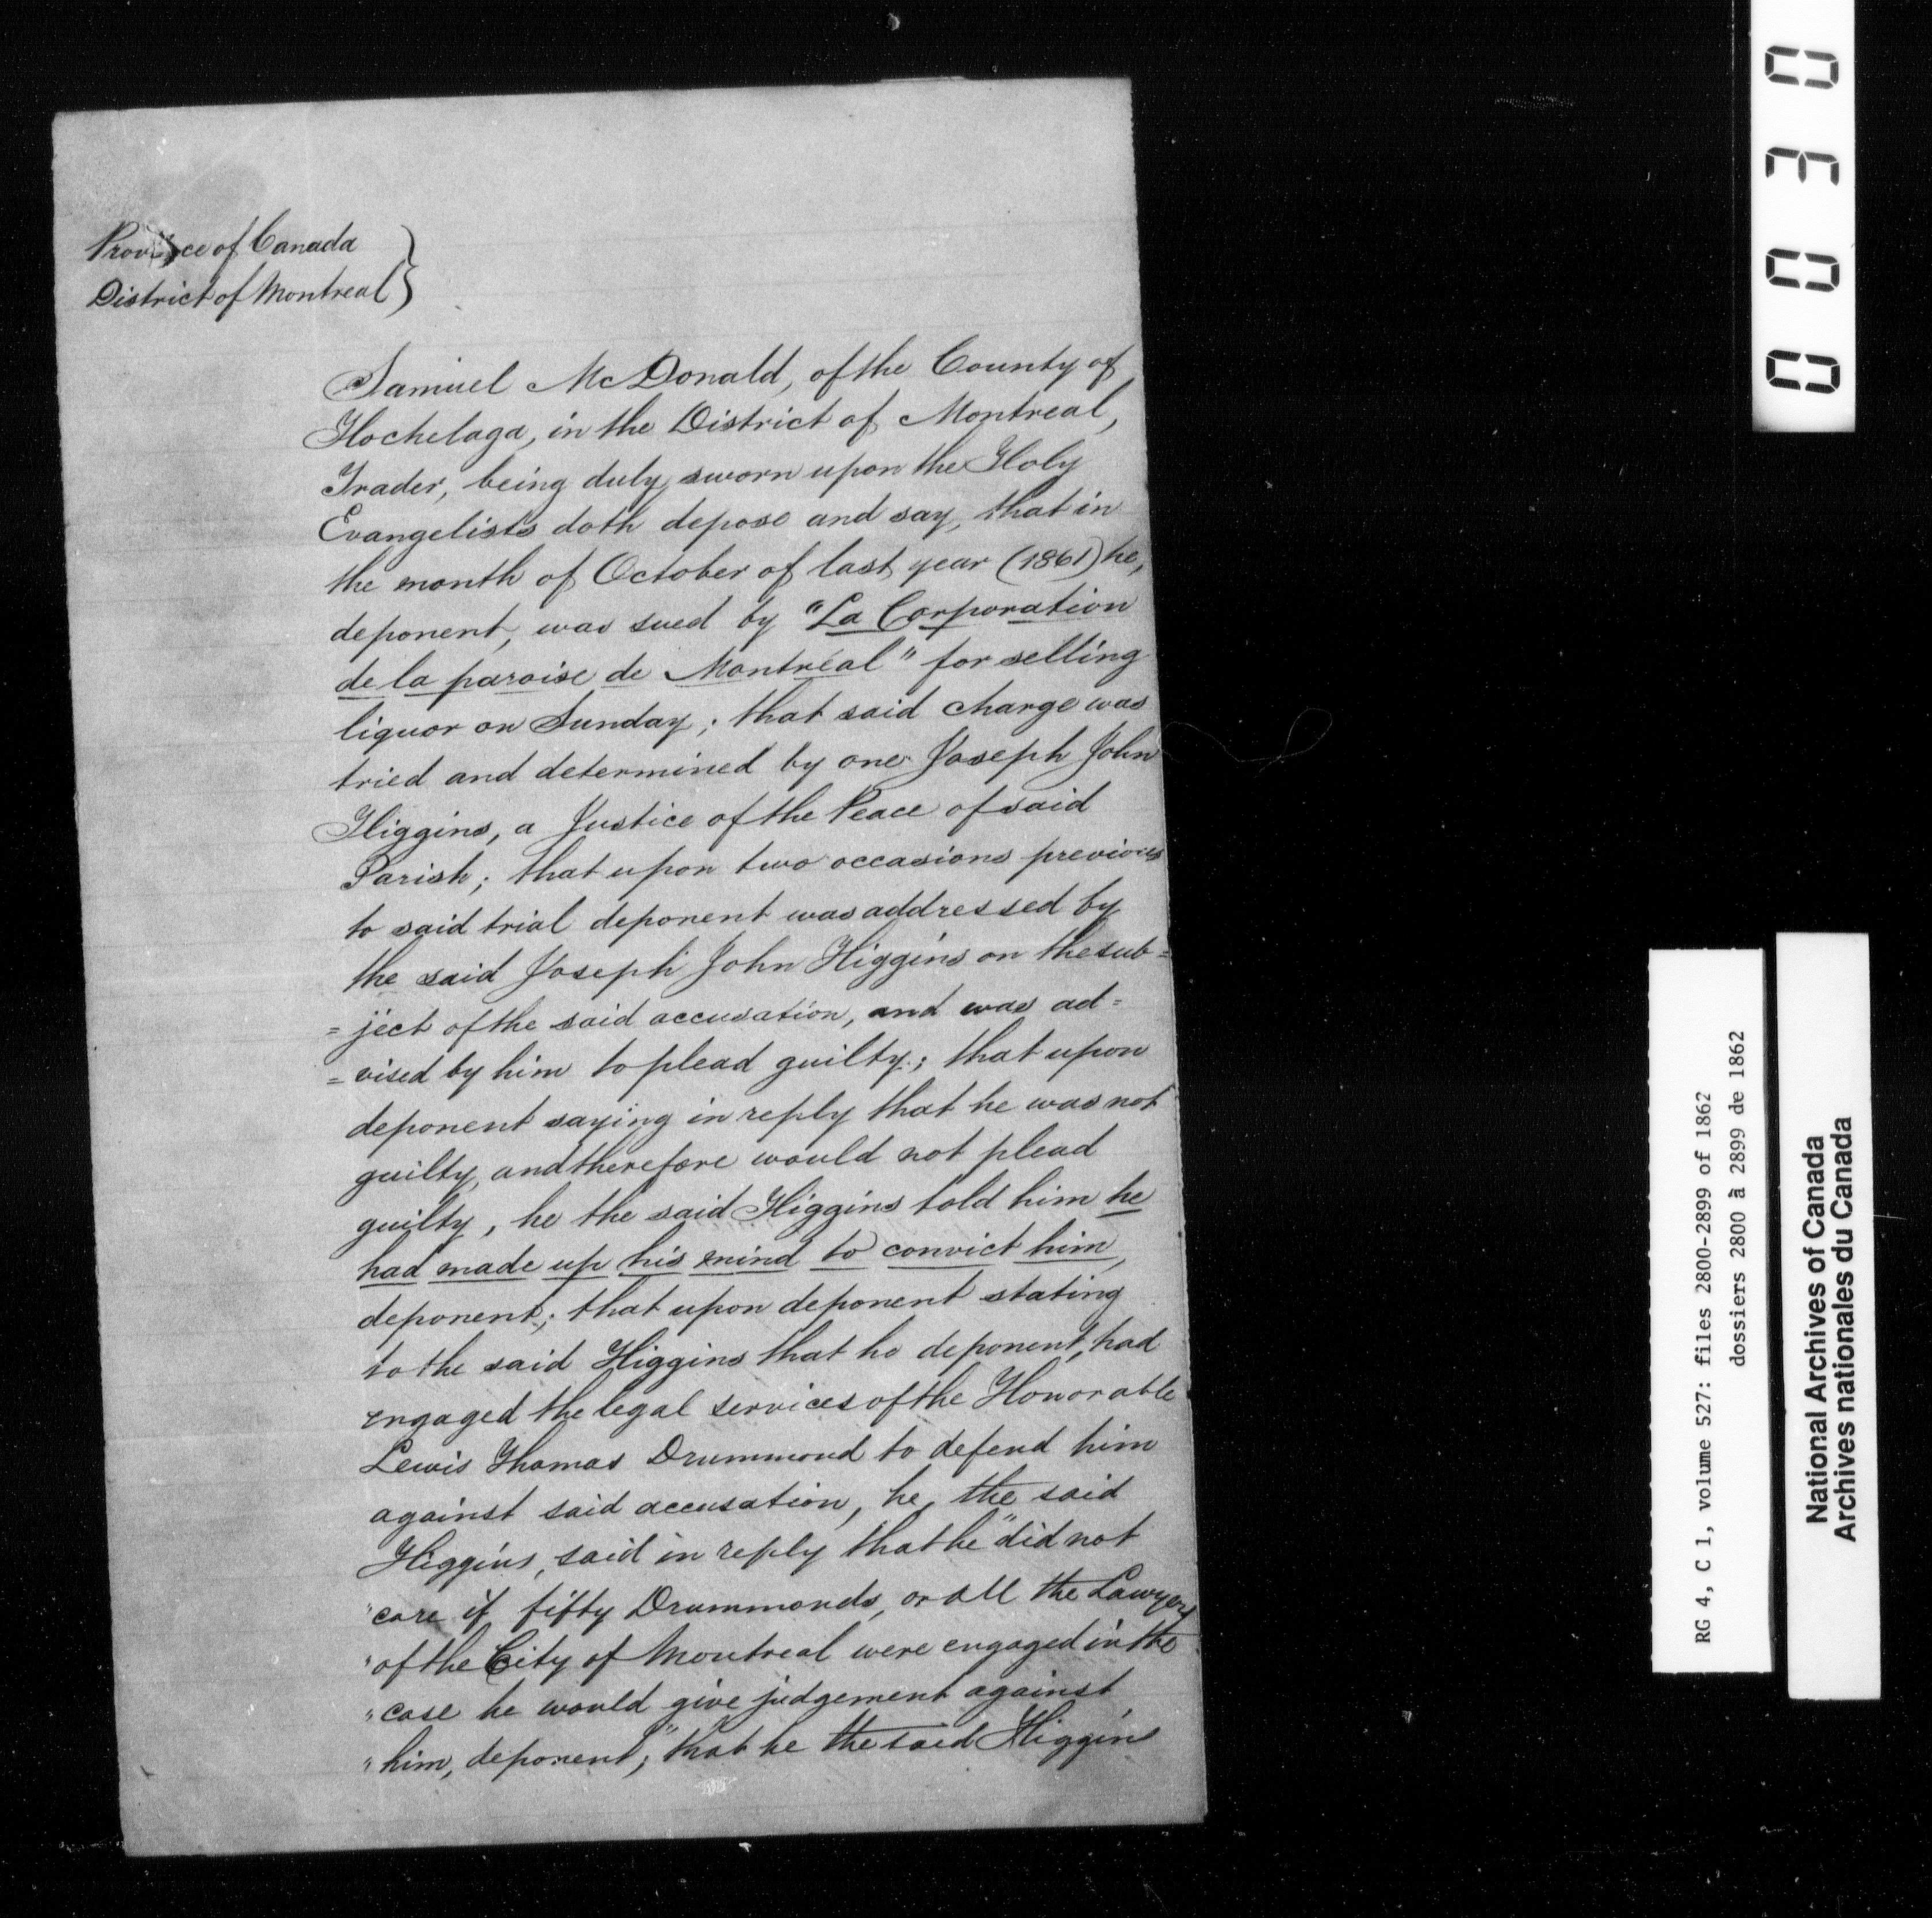 Province of Canada
District of Montreal
Samuel McDonald, of the County of
Hochelaga, in the District of Montreal,
Trader, being duly sworn upon the Holy
Evangelists doth depose and say, that in
the month of October of last year (1861) he,
deponent, was sued by "La Corporation
de la paroise de Montréal" for selling
liquor on Sunday; that said charge was
tried and determined by one Joseph John
Higgins, a Justice of the Peace of said
Parish; that upon two occasions previous
to said trial deponent was addressed by
the said Joseph John Higgins on the sub=
=ject of the said accusation, and was ad=
=vised by him to plead guilty; that upon
deponent saying in reply that he was not
guilty, and therefore would not plead
guilty, he the said Higgins told him he
had made up his mind to convict him,
deponent; that upon deponent stating
to the said Higgins that he deponent, had
engaged the legal services of the Honorable
Lewis Thomas Drummond to defend him
against said accusation, he, the said
Higgins, said in reply that he "did not
"care if fifty Drummonds, or all the Lawyers
"of the City of Montreal were engaged in the
"case he would give judgement against
"him, deponent;" that he the said Higgins
0030
RG 4, C 1, volume 527: files 2800-2899 of 1862
dossiers 2800 à 2899 de 1862
National Archives of Canada
Archives nationales du Canada